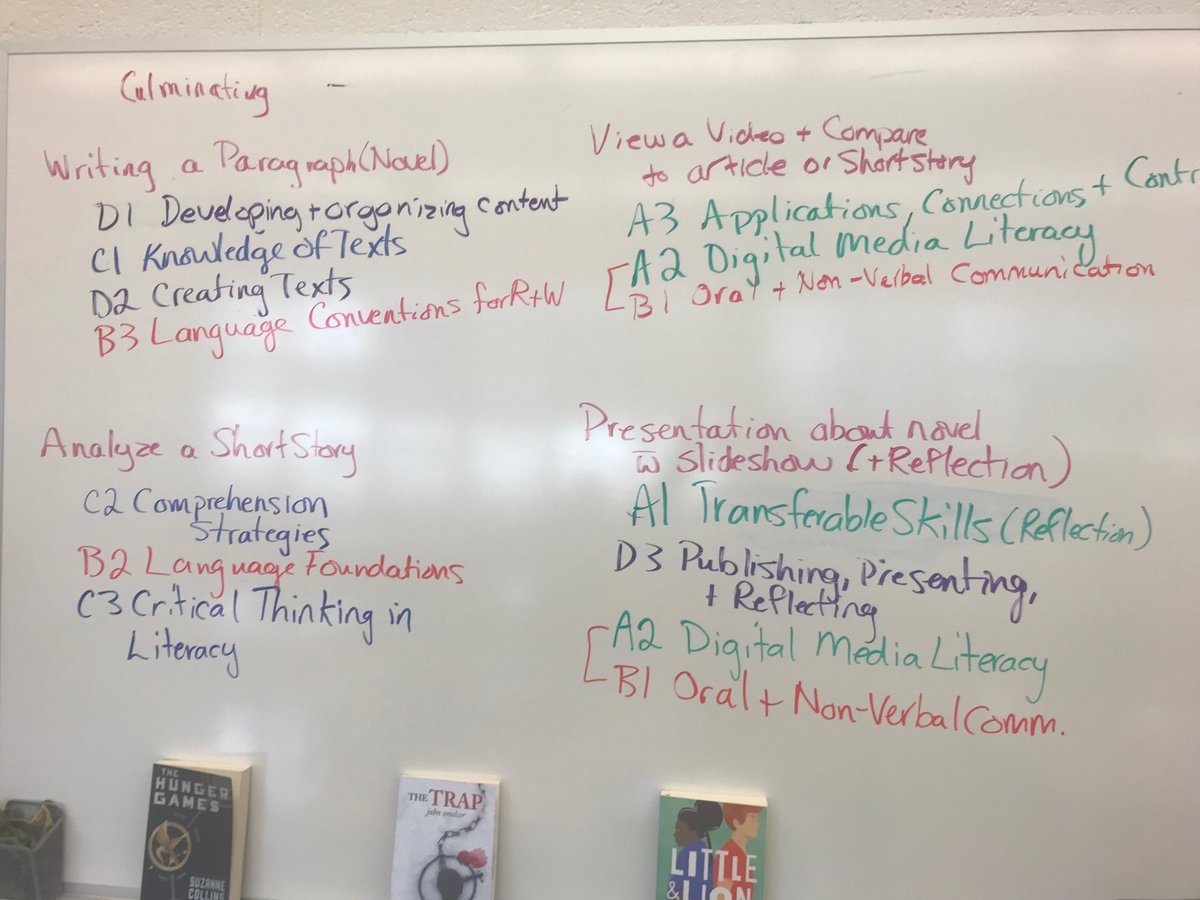 Culminating -
Writing a Paragraph (Novel)
D1 Developing + organizing content
C1 Knowledge of Texts
D2 Creating Texts
B3 Language Conventions for R+W
View a Video + Compare
to article or Short Story
A3 Applications, Connections + Contr
A2 Digital Media Literacy
B1 Oral + Non-Verbal Communication
Analyze a Short Story
C2 Comprehension
Strategies
B2 Language Foundations
C3 Critical Thinking in
Literacy
Presentation about novel
w slideshow (+Reflection)
A1 Transferable Skills (Reflection)
D3 Publishing, Presenting,
+ Reflecting
A2 Digital Media Literacy
B1 Oral + Non-Verbal Comm.
THE
HUNGER
GAMES
SUZANNE
COLLINS
THE TRAP
john smelcer
LITTLE
& LION